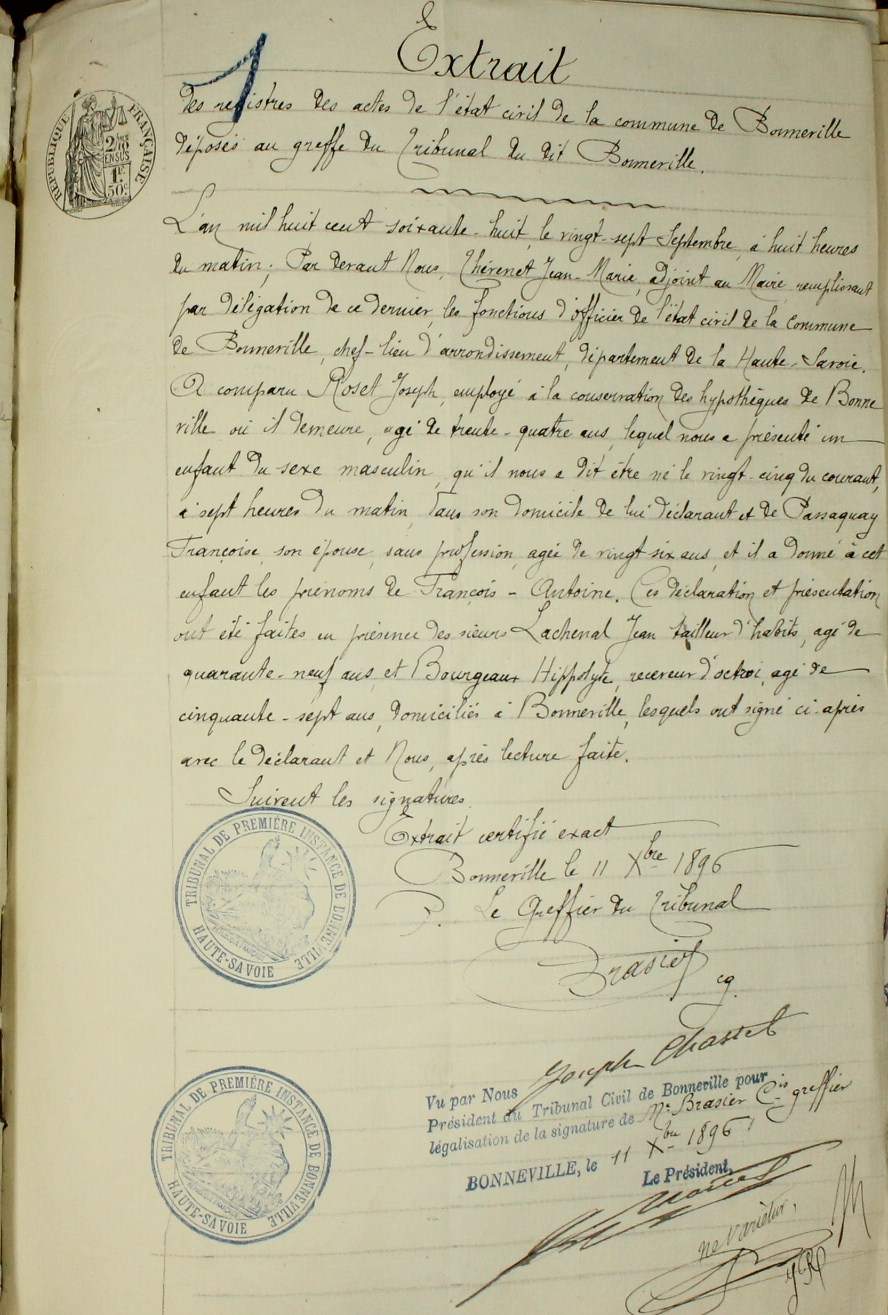 Extrait
1
RÉPUBLIQUE FRANÇAISE
2/10 EN SUS
1F 50c
des registres des actes de l'état civil de la commune de Bonneville
déposés au greffe du Tribunal du dit Bonneville.
L'an mil huit cent soixante-huit, le vingt-sept Septembre, à huit heures
du matin; Par devant Nous, Thévenet Jean-Marie, adjoint au Maire, remplissant
par délégation de ce dernier, les fonctions d'officier de l'état civil de la commune
de Bonneville, chef-lieu d'arrondissement, département de la Haute-Savoie.
A comparu Roset Joseph, employé à la conservation des hypothèques de Bonne
ville où il demeure, agé de trente-quatre ans, lequel nous a présenté un
enfant du sexe masculin, qu'il nous a dit être né le vingt-cinq du courant,
à sept heures du matin, dans son domicile de lui déclarant et de Passaquay
Françoise, son épouse, sans profession, agée de vingt six ans, et il a donné à cet
enfant les prénoms de François-Antoine. Ces déclaration et présentation
ont été faites en présence des sieurs Lachenal Jean tailleur d'habits, agé de
quarante-neuf ans, et Bourgeaux Hippolyte, receveur d'octroi, agé de
cinquante-sept ans, domiciliés à Bonneville, lesquels ont signé ci-après
avec le déclarant et Nous, après lecture faite.
Suivent les signatures.
Extrait certifié exact
Bonneville le 11 Xbre 1896
P. Le Greffier du Tribunal
Brasier
cg.
TRIBUNAL DE PREMIÈRE INSTANCE DE BONNEVILLE
HAUTE-SAVOIE
Vu par Nous Joseph Chastel
Président du Tribunal Civil de Bonneville pour
légalisation de la signature de Mr Brasier Cis greffier
BONNEVILLE, le 11 Xbre 1896
Le Président,
TRIBUNAL DE PREMIÈRE INSTANCE DE BONNEVILLE
HAUTE-SAVOIE
ne varietur,